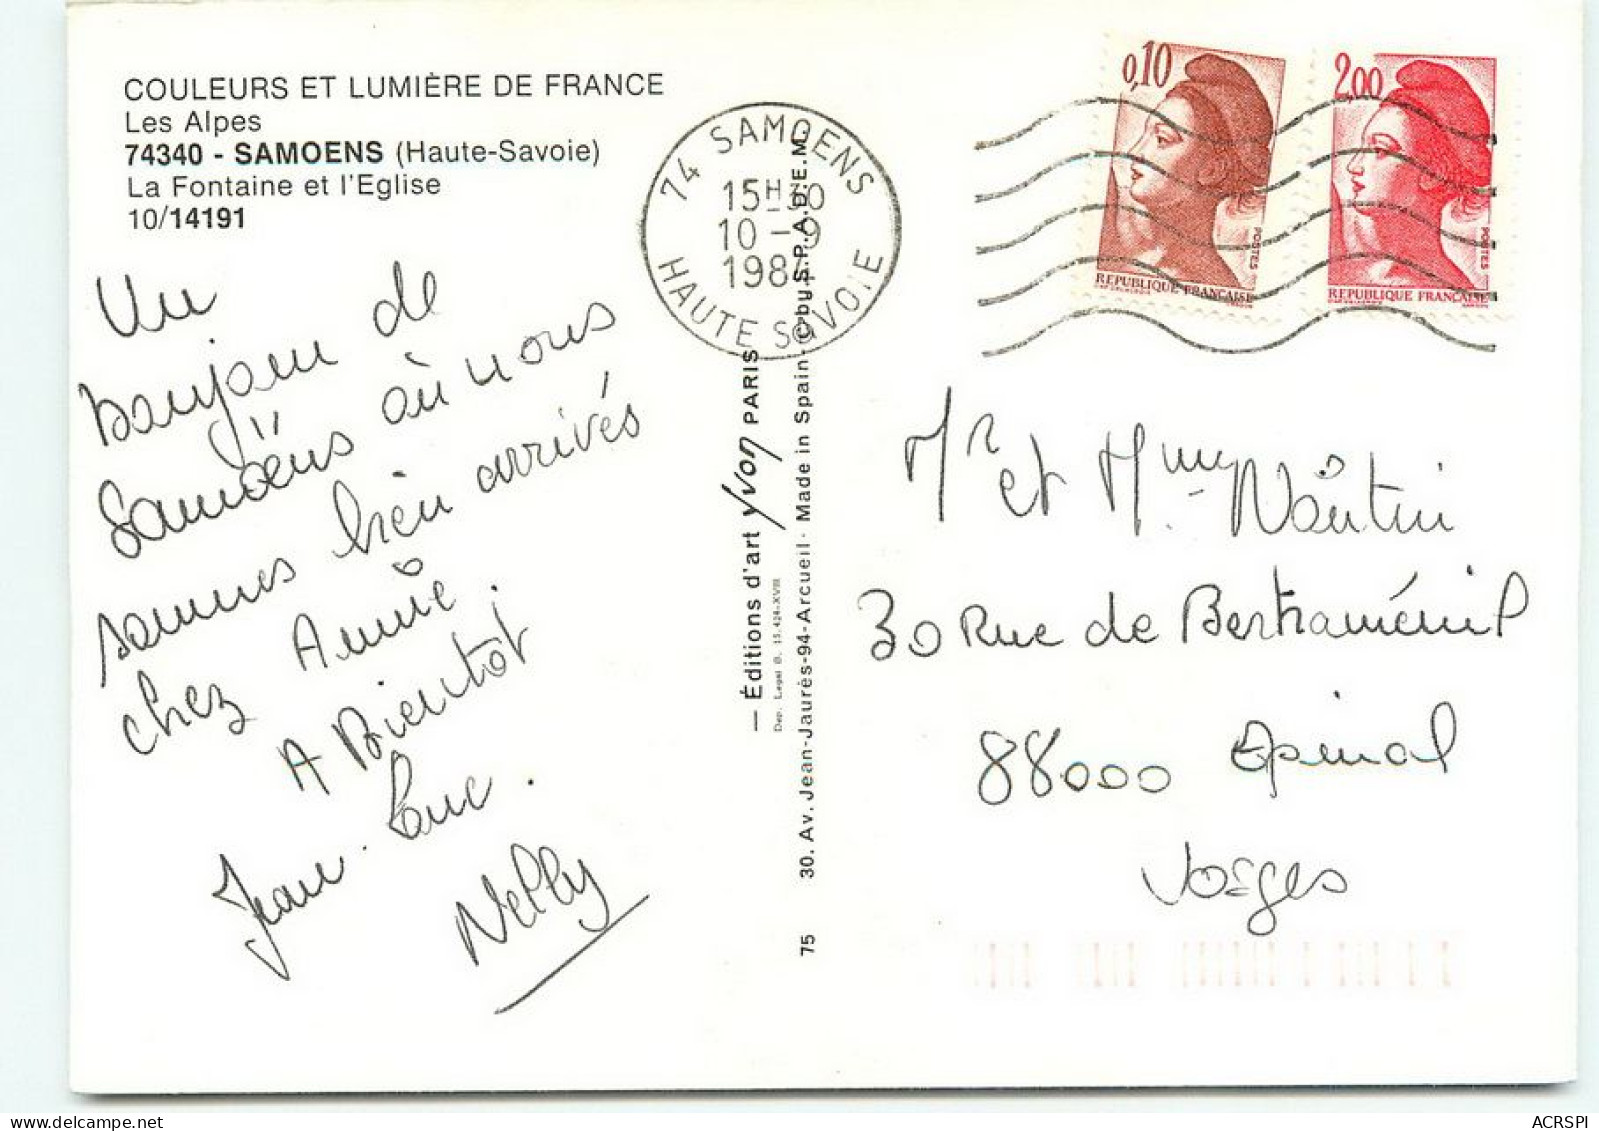 COULEURS ET LUMIÈRE DE FRANCE
Les Alpes
74340 - SAMOENS (Haute-Savoie)
La Fontaine et l'Eglise
10/14191
Un
Bonjour de
Samoëns où nous
sommes bien arrivés
chez Annie.
A Bientôt
Jean-Luc.
Nelly
74 SAMOENS
15H30
10-9
198
HAUTE SAVOIE
— Éditions d'art Yvon PARIS
Dep. Legal B. 15.424-XVIII
75 30. Av. Jean-Jaurès-94-Arcueil- Made in Spain- © by S.P.A.D.E.M.
0,10
POSTES
REPUBLIQUE FRANÇAISE
2,00
POSTES
REPUBLIQUE FRANÇAISE
Mr et Mme
30 Rue de Bertraménil
88000 Epinal
Vosges
ACRSPI